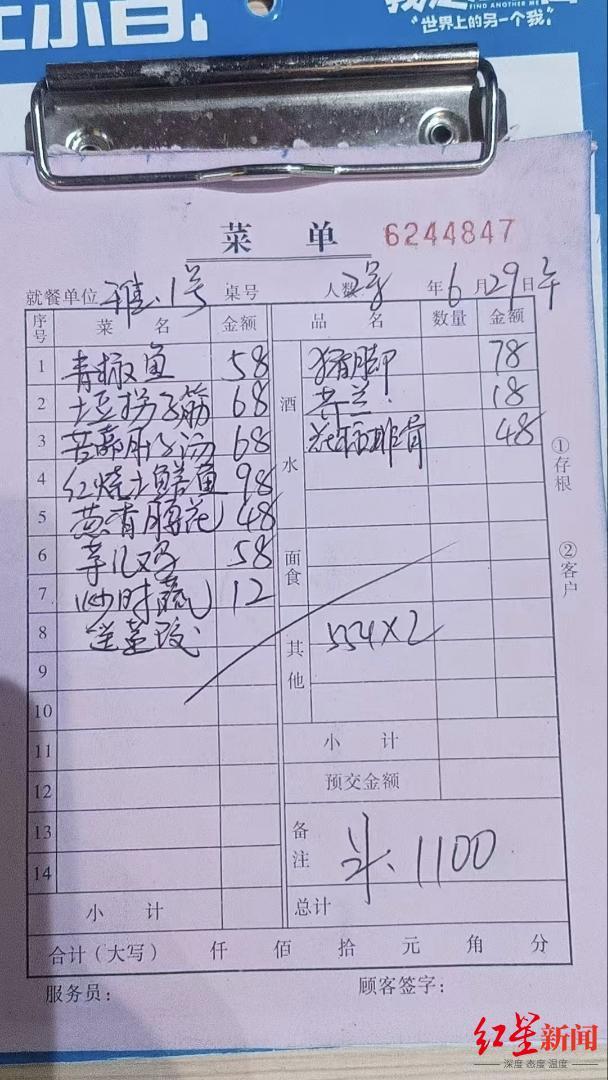 FIND ANOTHER ME
“世界上的另一个我”
菜 单 6244847
就餐单位 雅.1号 桌号 人数 年6月29日午
序号 菜 名 金额 品 名 数量 金额
1 青椒鱼 58 酒水 猪脚 78
2 土豆拐子筋 68 18
3 68 排骨 48
4 红烧土鳝鱼 98
5 48
6 芋儿鸡 58 面食
7 炒时蔬 12
8 送 其他 554X2
9
10
11 小 计
12 预交金额
13 备注 1100
14
小 计 总计
合计(大写) 仟 佰 拾 元 角 分
服务员: 顾客签字:
①存根
②客户
红星新闻
深度 态度 温度